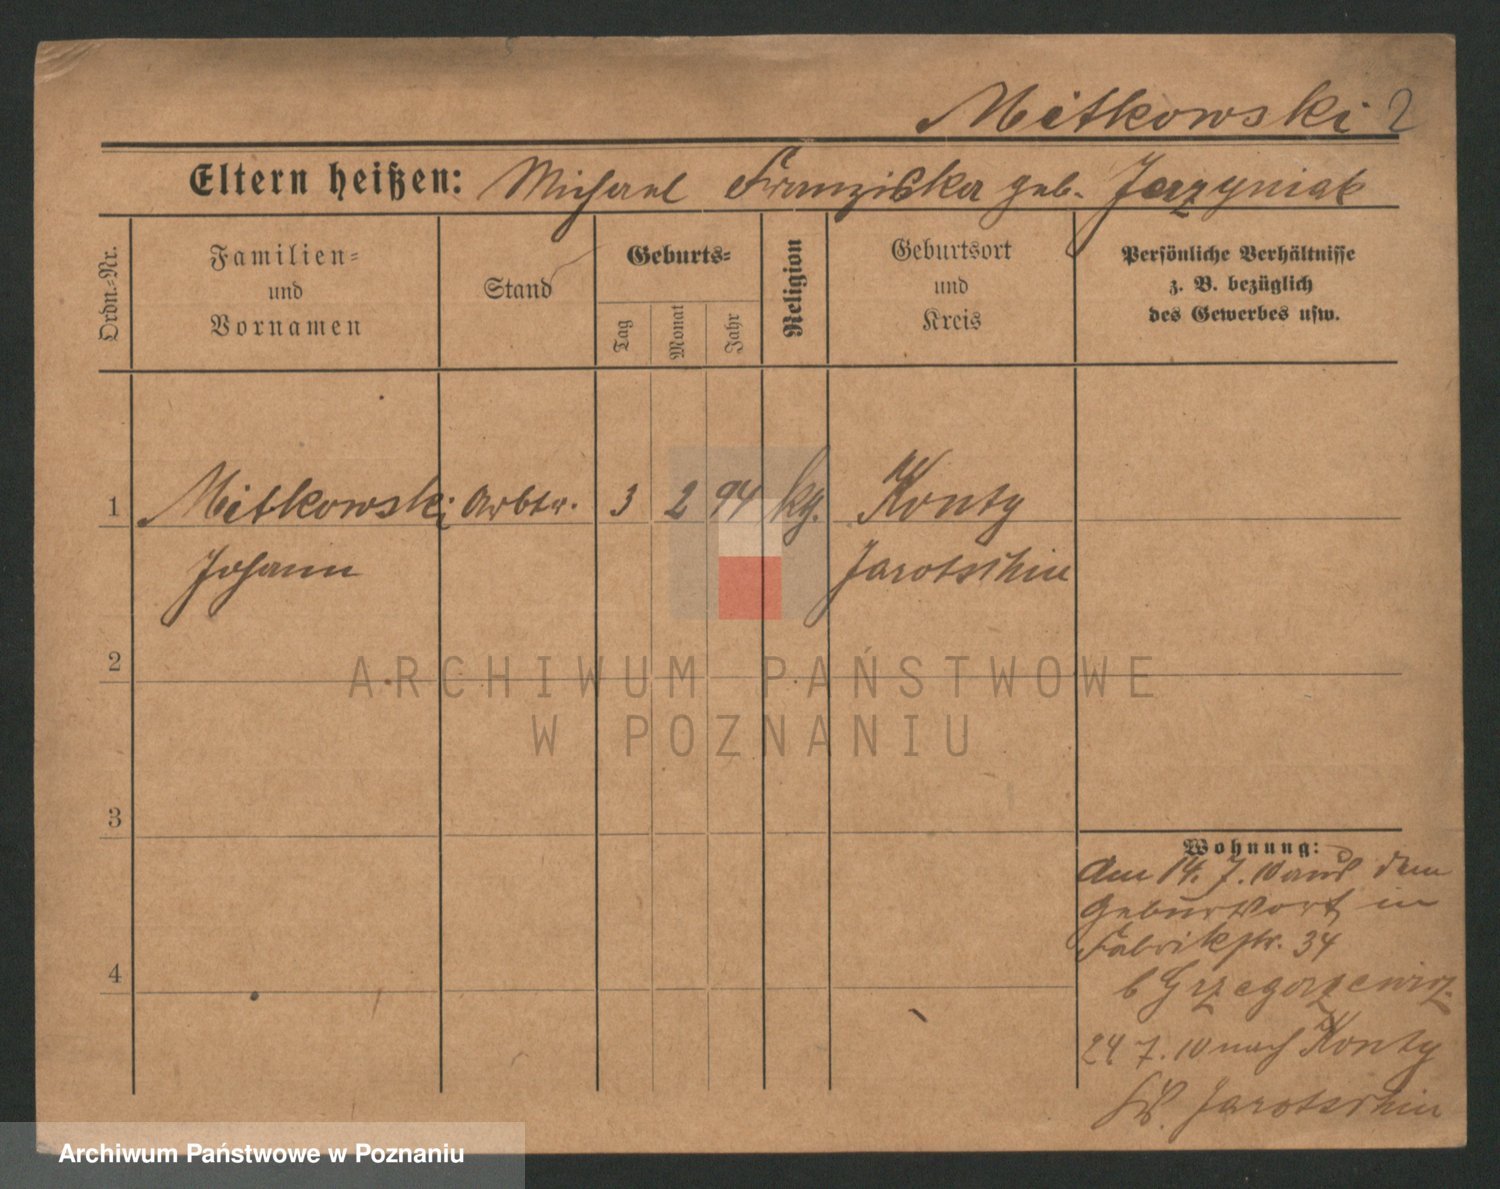 Mitkowski 2
Eltern heißen: Michael Franziska geb. Jerzyniak
Ordn.-Nr.
Familien-
und
Vornamen
Stand
Geburts-
Tag
Monat
Jahr
Religion
Geburtsort
und
Kreis
Persönliche Verhältnisse
z. B. bezüglich
des Gewerbes usw.
1 Mitkowski Arbtr. 3 2 94 kg. Konty
Johann Jarotschin
2
ARCHIWUM PAŃSTWOWE
W POZNANIU
3
Wohnung:
Am 14. 7. 10 aus dem
Geburtsort in
Fabrikstr. 34
b Grzegorzewicz
4
24. 7. 10 nach Konty
Jarotschin
Archiwum Państwowe w Poznaniu